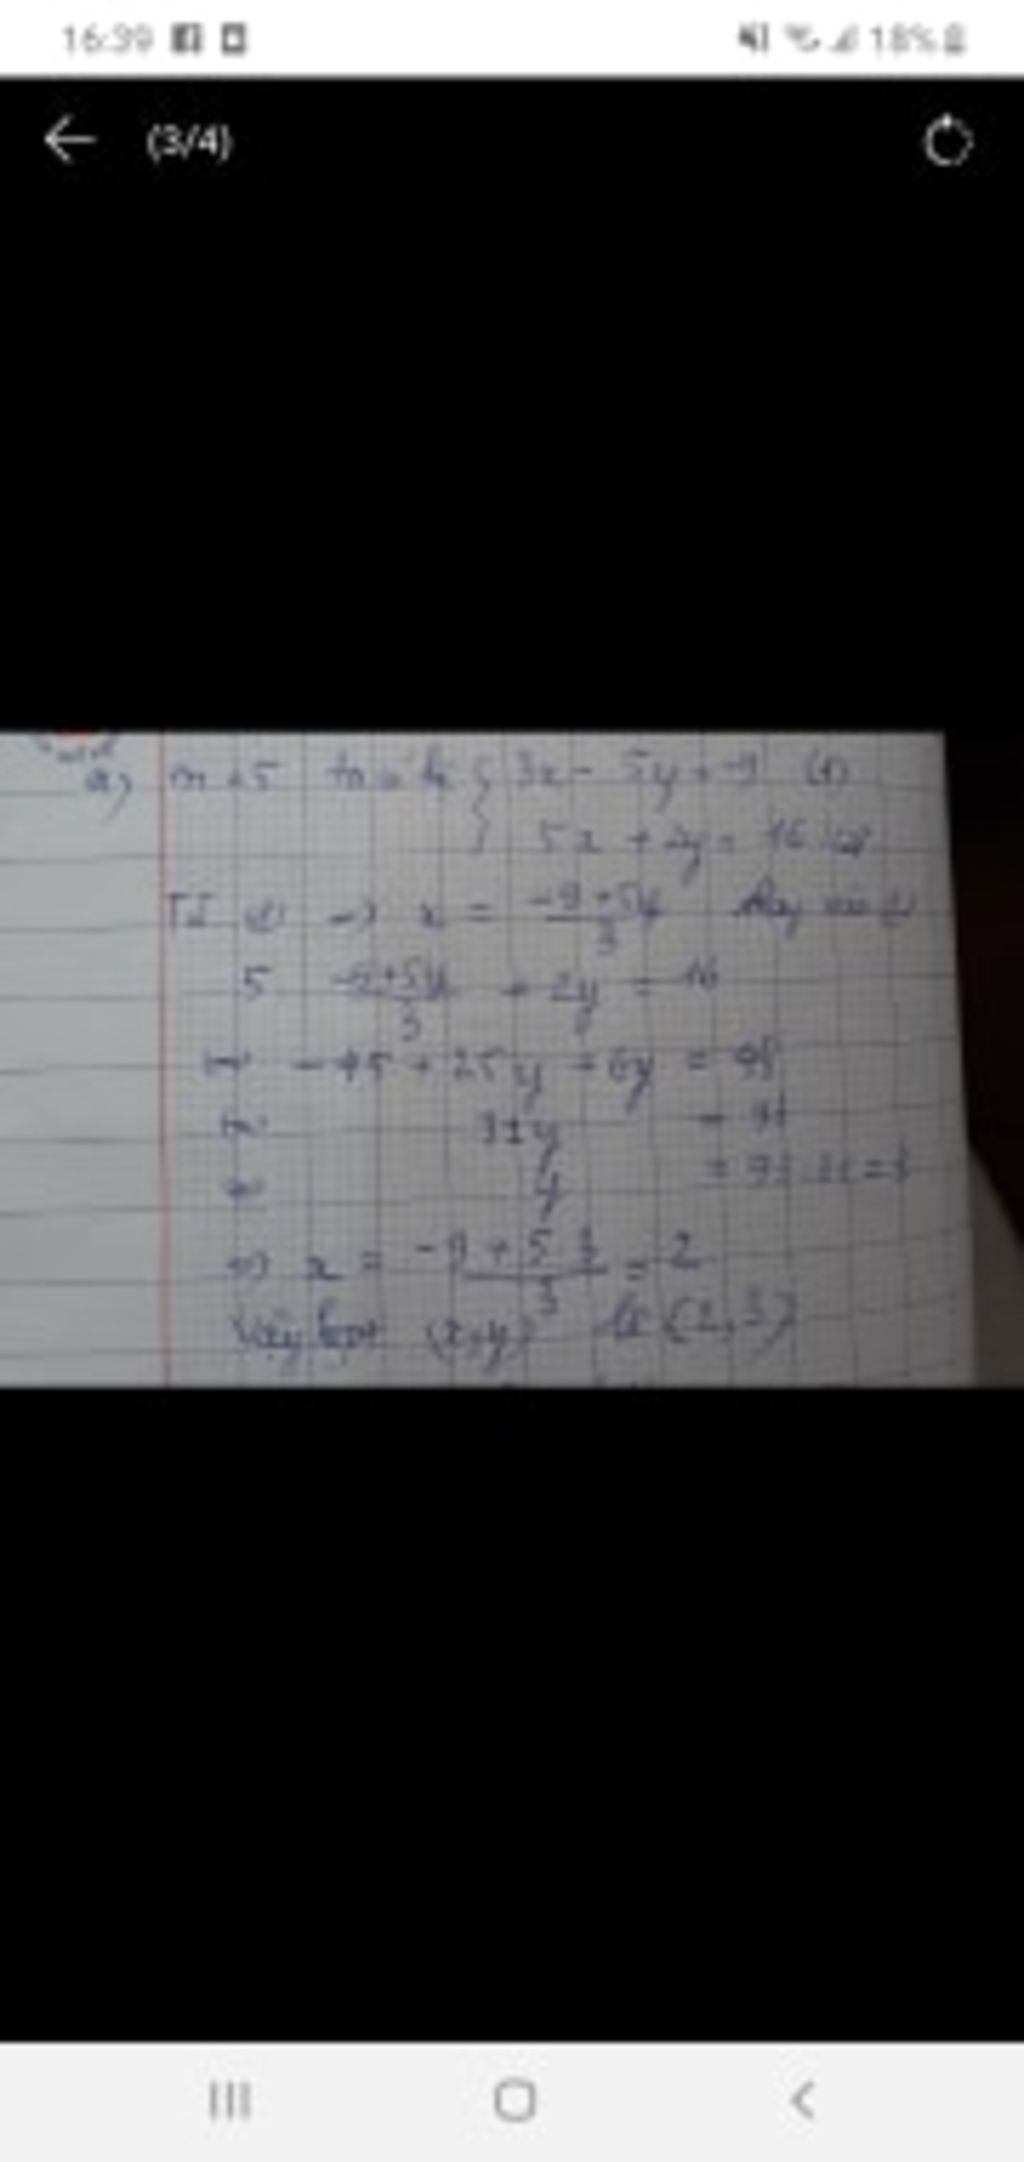 16:39 18%
(3/4)
a) m = 5 ta có hệ { 3x - 5y = -9 (1)
5x + 2y = 16 (2)
Từ (1) => x = -9+5y / 3 thay vào
5 -9+5y / 3 + 2y = 16
<=> -45 + 25y + 6y = 48
<=> 31y = 93
<=> y = 93 : 31 = 3
=> x = -9 + 5.3 / 3 = 2
Vậy (x,y) là (2,3)